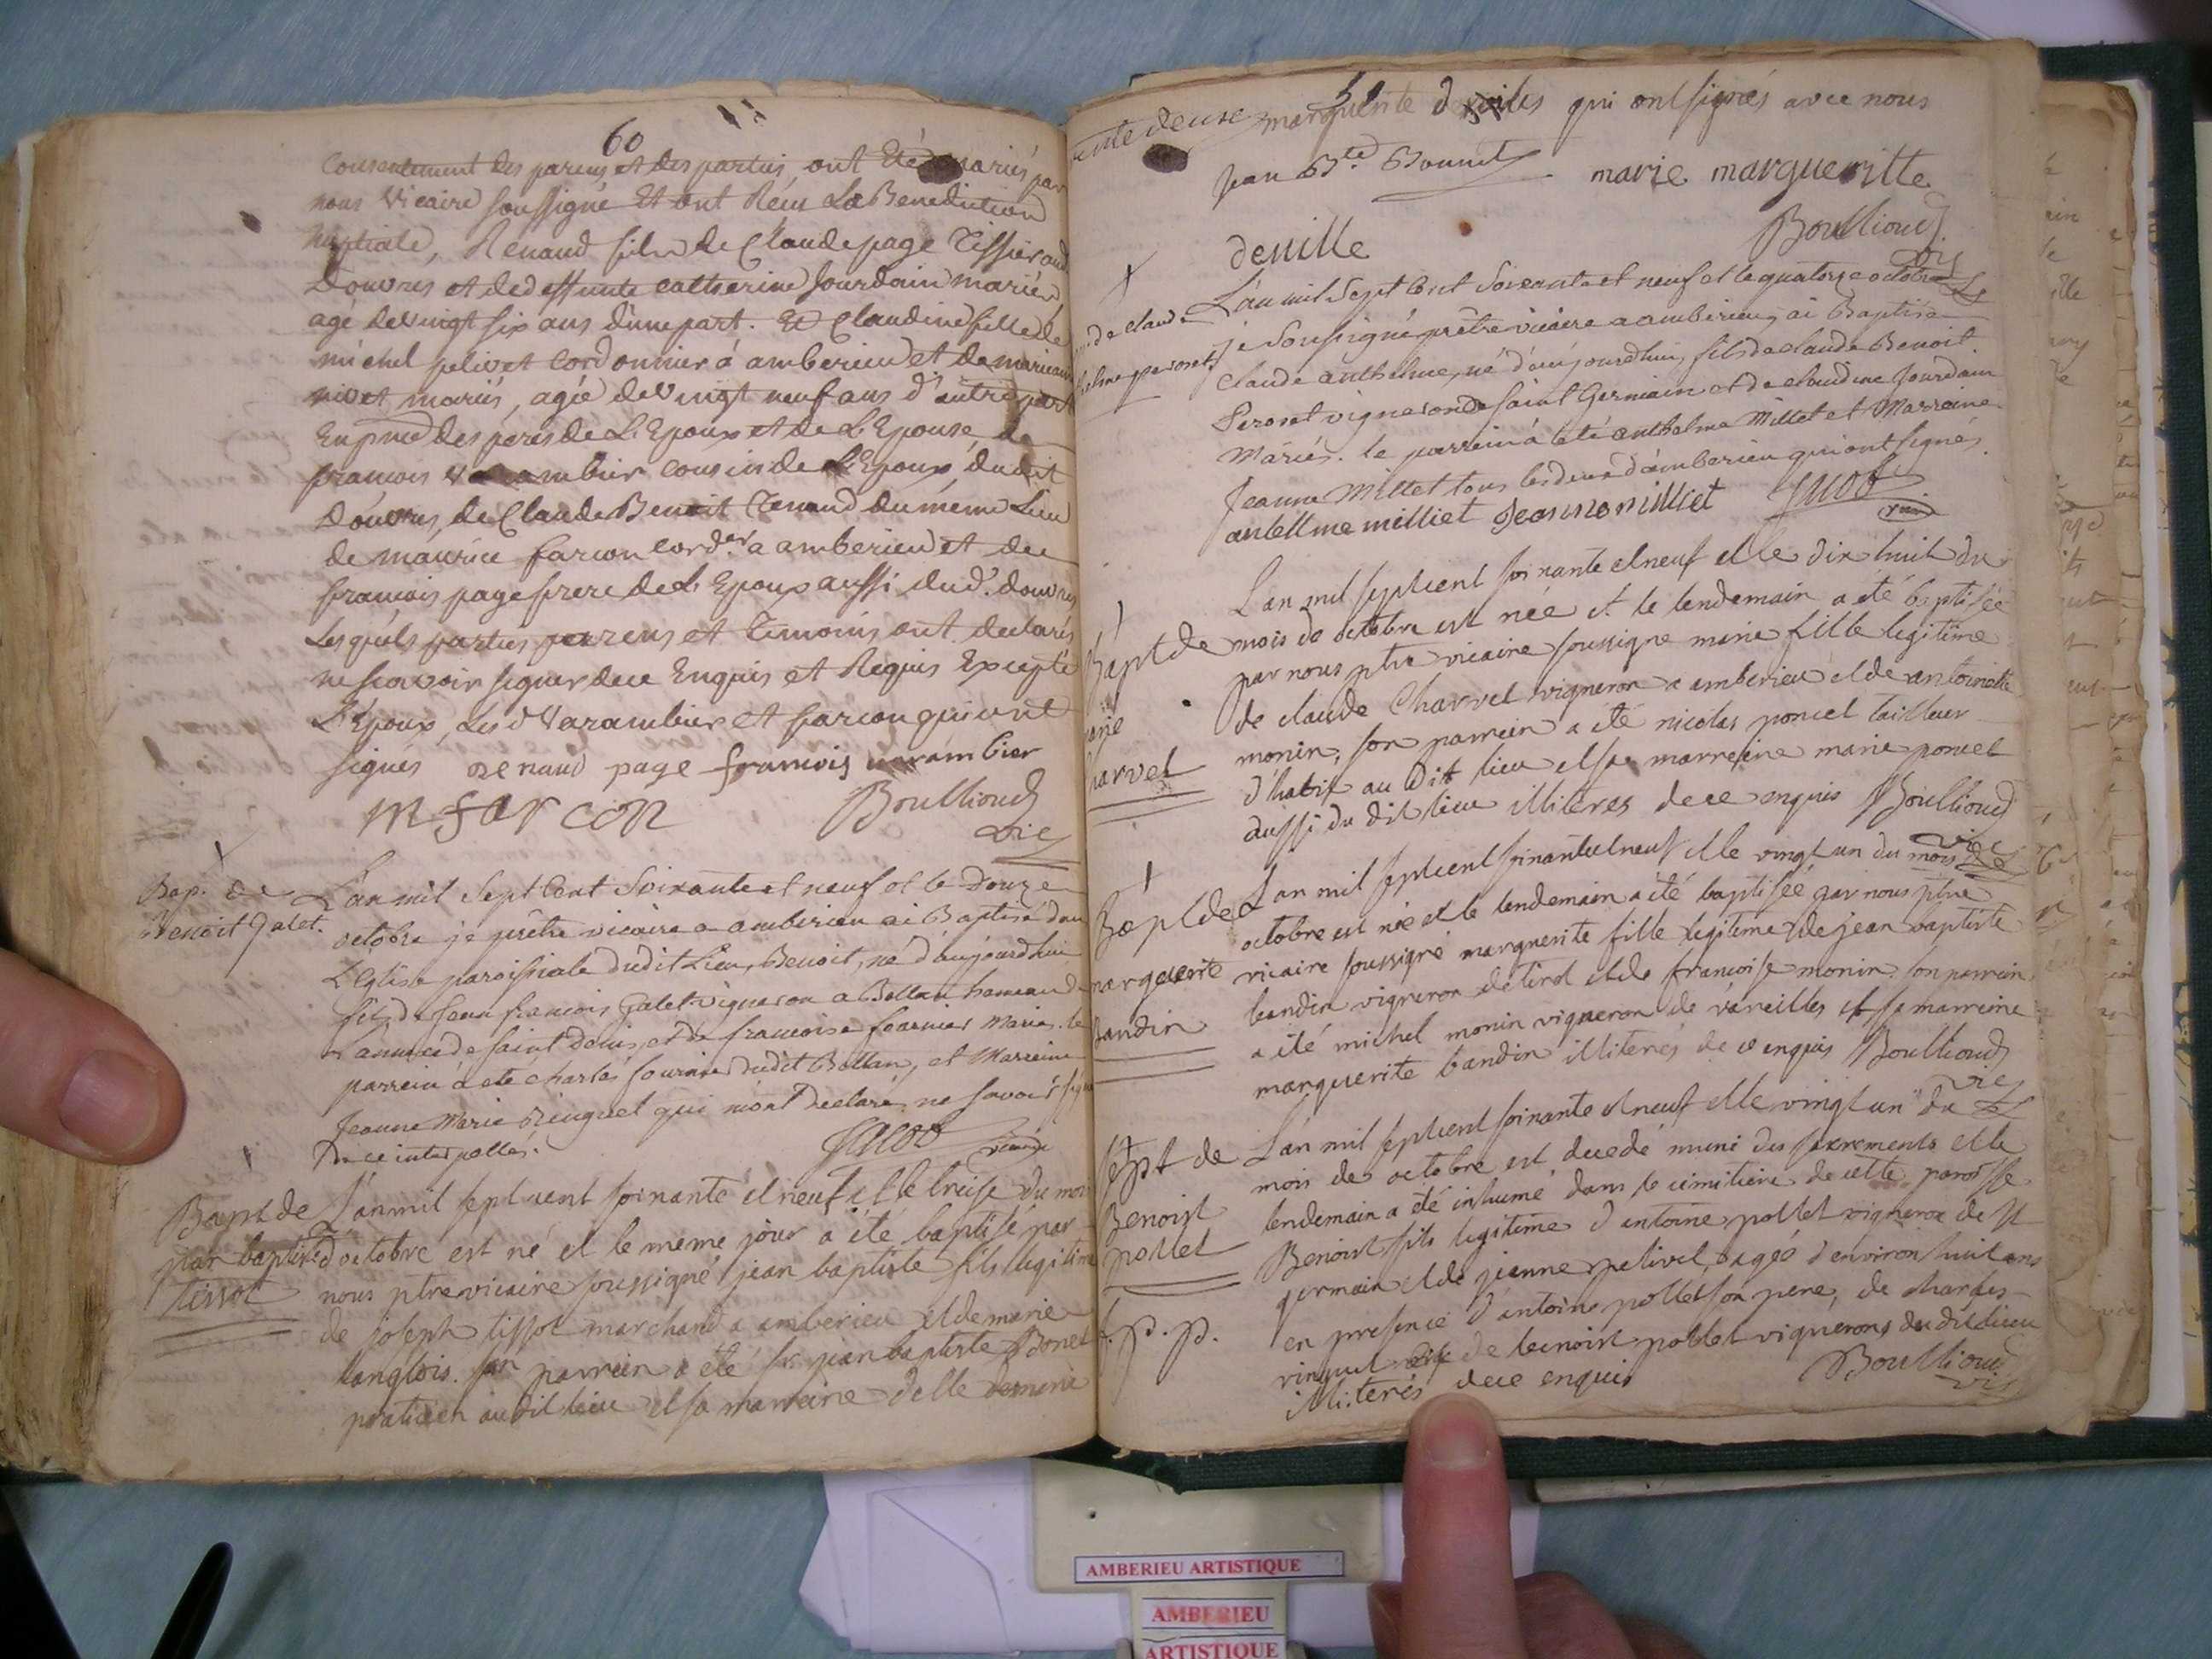 60
Consentement des parens et des parties, ont été mariés par
nous vicaire soussigné et ont Recu La Benediction
nuptiale, Renaud fils de Claude page Tissierand
Douvres et de deffunte catherine Jourdain mariés
agé de vingt six ans d'une part. Et Claudine fille de
michel pelivet Cordonnier à amberieu et de
nivet mariés, agée de vingt neuf ans d'autre part
En pnce des peres de L'Epoux et de L'Epouse de
francois varambier cousin de L'Epoux, dudit
Douvres, de Claude Benoit Renaud du même Lieu
de maurice farcon cord.er a amberieu et de
francois page frere de L'Epoux aussi dud.t douvres
Lesquels parties parens et Temoins ont declarés
ne scavoir signer de ce Enquis et Requis Excepté
L'Epoux, Les d varambier et farcon qui ont
signés renaud page francois varambier
m farcon Boullioud
vic
Bap. de
Benoit galet.
L'an mil Sept Cent Soixante et neuf et le Douze
octobre je prêtre vicaire a amberieu ai Baptisé dans
L'Eglise paroissiale dudit Lieu, Benoit, né d'aujourdhui
fils de Jean francois Galet vigneron a Bettan hameau de
annexe de saint denis, et de francoise fournier Mariés. le
parrein a eté Charles fournier dudit Bettan, et Marreine
Jeanne Marie Ringuet qui m'ont declaré ne savoir signer
De ce interpellés.
Jacob vicaire
Bapt de
jean baptiste
tissot
L'an mil sept cent soixante et neuf et le treise du mois
d'octobre est né et le meme jour a été baptisé par
nous ptre vicaire soussigné jean baptiste fils legitime
de joseph tissot marchand a amberieu et de marie
langlois. son parrein a été sr jean baptiste Bonet
praticien audit lieu et sa marreine delle
51
marguerite qui ont signés avec nous
jean Bte Bonnet marie margueritte
deville Boullioud
vic
de claude
anthelme peroset
L'an mil Sept Cent Soixante et neuf et le quatorze octobre
je Soussigné prêtre vicaire a amberieu, ai Baptisé
Claude anthelme, né d'aujourdhui, fils de claude Benoit
Peroset vigneron de saint Germain et de claudine Jourdain
Mariés. le parrein a eté anthelme Millet et Marreine
Jeanne Millet tous les deux d'amberieu qui ont signés.
antellme milliet Jeanne milliet Jacob
vicaire
Bapt de
marie
charvet
L'an mil sept cent soixante et neuf et le dix huit du
mois de octobre est née et le lendemain a été baptisée
par nous ptre vicaire soussigne marie fille legitime
de claude Charvet vigneron a amberieu et de antoinette
monin, son parrein a été nicolas poncet tailleur
d'habit au dit lieu et sa marreine marie poncet
aussi du dit lieu illiteres de ce enquis Boullioud
vic
Bapt de
marguerite
bandin
L an mil sept cent soixante et neuf et le vingt un du mois de
octobre est née et le lendemain a été baptisée par nous ptre
vicaire soussigné marguerite fille legitime de jean baptiste
bandin vigneron de tiret et de francoise monin. son parrein
a été michel monin vigneron de vareilles et sa marreine
marguerite bandin illiterés de ce enquis Boullioud
vic
sept de
Benoist
pollet
p. p.
L'an mil sept cent soixante et neuf et le vingt un du
mois de octobre est decedé muni des sacrements et le
lendemain a été inhumé dans le cimitiere de cette paroisse
Benoist fils legitime d'antoine pollet vigneron de st
germain et de jeanne petivet, agéé d'environ huit ans
en presence d'antoine pollet son pere, de charles
vinquet et de benoist pollet vignerons du dit lieu
illiterés de ce enquis Boullioud
vic
AMBERIEU ARTISTIQUE
AMBERIEU
ARTISTIQUE